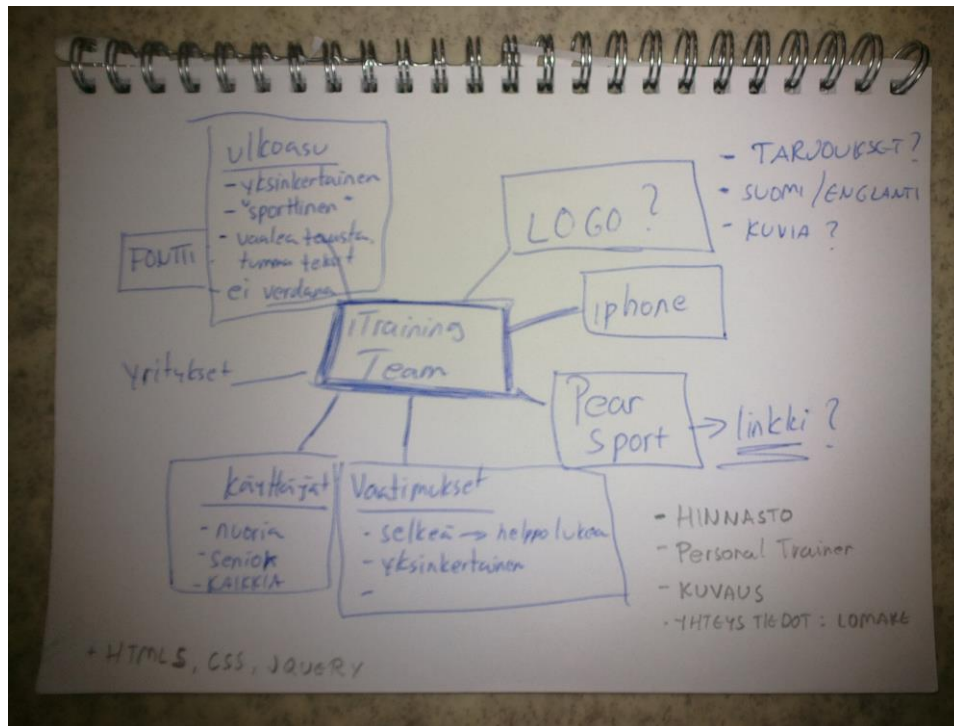 ulkoasu
- yksinkertainen
- "sporttinen"
- vaalea tausta,
tumma teksti
- ei verdana
FONTTI
LOGO?
- TARJOUKSET?
- SUOMI/ENGLANTI
- KUVIA?
iphone
iTraining
Team
yritykset
Pear
Sport
→ linkki?
käyttäjät
- nuoria
- seniori
- KAIKKIA
Vaatimukset
- selkeä → helppo lukea
- yksinkertainen
-
- HINNASTO
- Personal Trainer
- KUVAUS
- YHTEYSTIEDOT: LOMAKE
+ HTML5, CSS, JQUERY